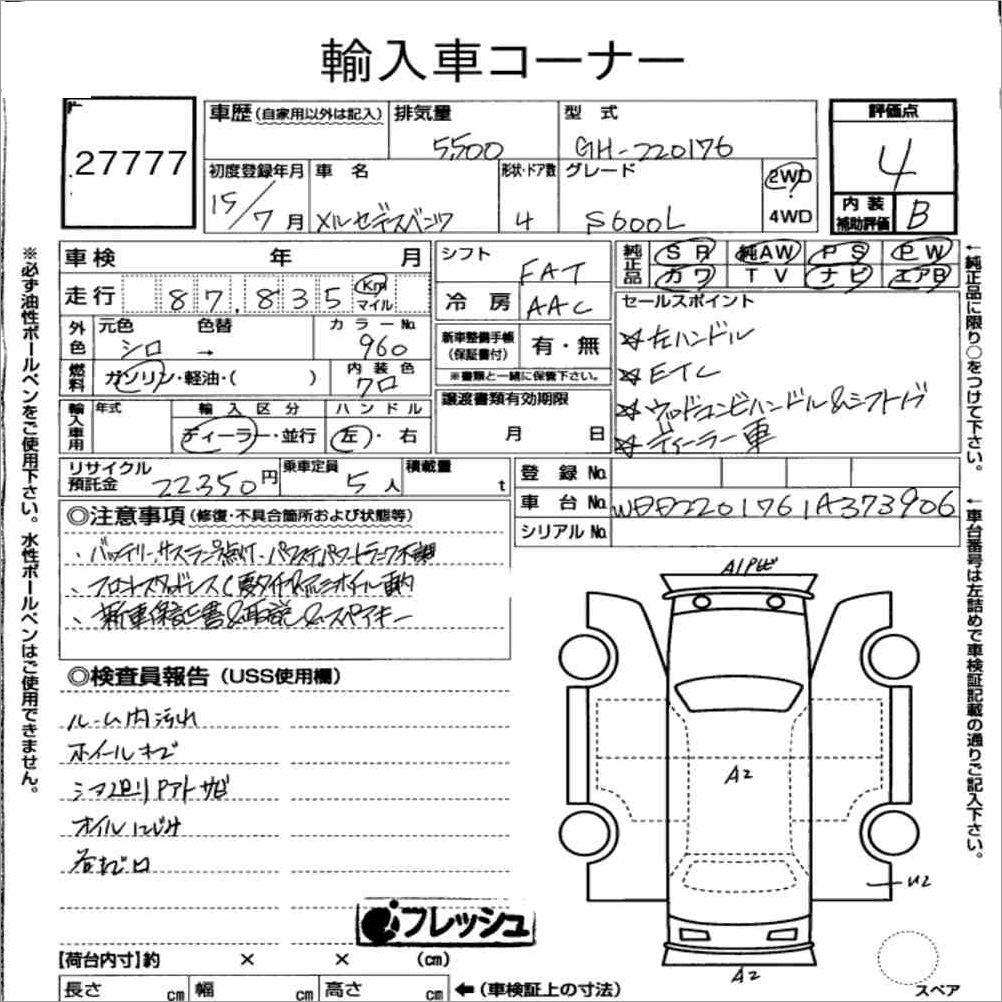 輸入車コーナー
27777
車歴(自家用以外は記入) 排気量 型式 評価点
5,500 GH-220176 4
初度登録年月 車名 形状・ドア数 グレード 2WD
15/7月 メルセデスベンツ 4 S600L 4WD
内装補助評価 B
車検 年 月 シフト FAT 純正品 SR 純AW PS PW
走行 87,835 Km マイル 冷房 AAC カワ TV ナビ エアB
外色 元色 色替 カラーNo. 新車整備手帳(保証書付) 有・無 セールスポイント
シロ → 960 ☆左ハンドル
燃料 ガソリン・軽油・( ) 内装色 クロ ※書類と一緒に保管下さい。 ☆ETC
輸入車用 年式 輸入区分 ハンドル 譲渡書類有効期限 ☆ウッドコンビハンドル&シフトノブ
ディーラー・並行 左・右 月 日 ☆ディーラー車
リサイクル預託金 22350円 乗車定員 5人 積載量 t 登録No.
車台No. WDB2201761A373906
◎注意事項(修復・不具合箇所および状態等) シリアルNo.
、バッテリー、サスランプ点灯、パワステパワートランク不調
、フロントスタッドレス(夏タイヤ&アルミホイル車内
、新車保証書&取説&スペアキー
◎検査員報告(USS使用欄)
ルーム内汚れ
ホイールキズ
シタ廻りPアトサビ
オイルにじみ
A1Pヒビ
A2
U2
A2
フレッシュ
【荷台内寸】約 × × (cm)
長さ cm 幅 cm 高さ cm ←(車検証上の寸法)
スペア
※必ず油性ボールペンをご使用下さい。水性ボールペンはご使用できません。
←純正品に限り○をつけて下さい。
←車台番号は左詰めで車検証記載の通りご記入下さい。